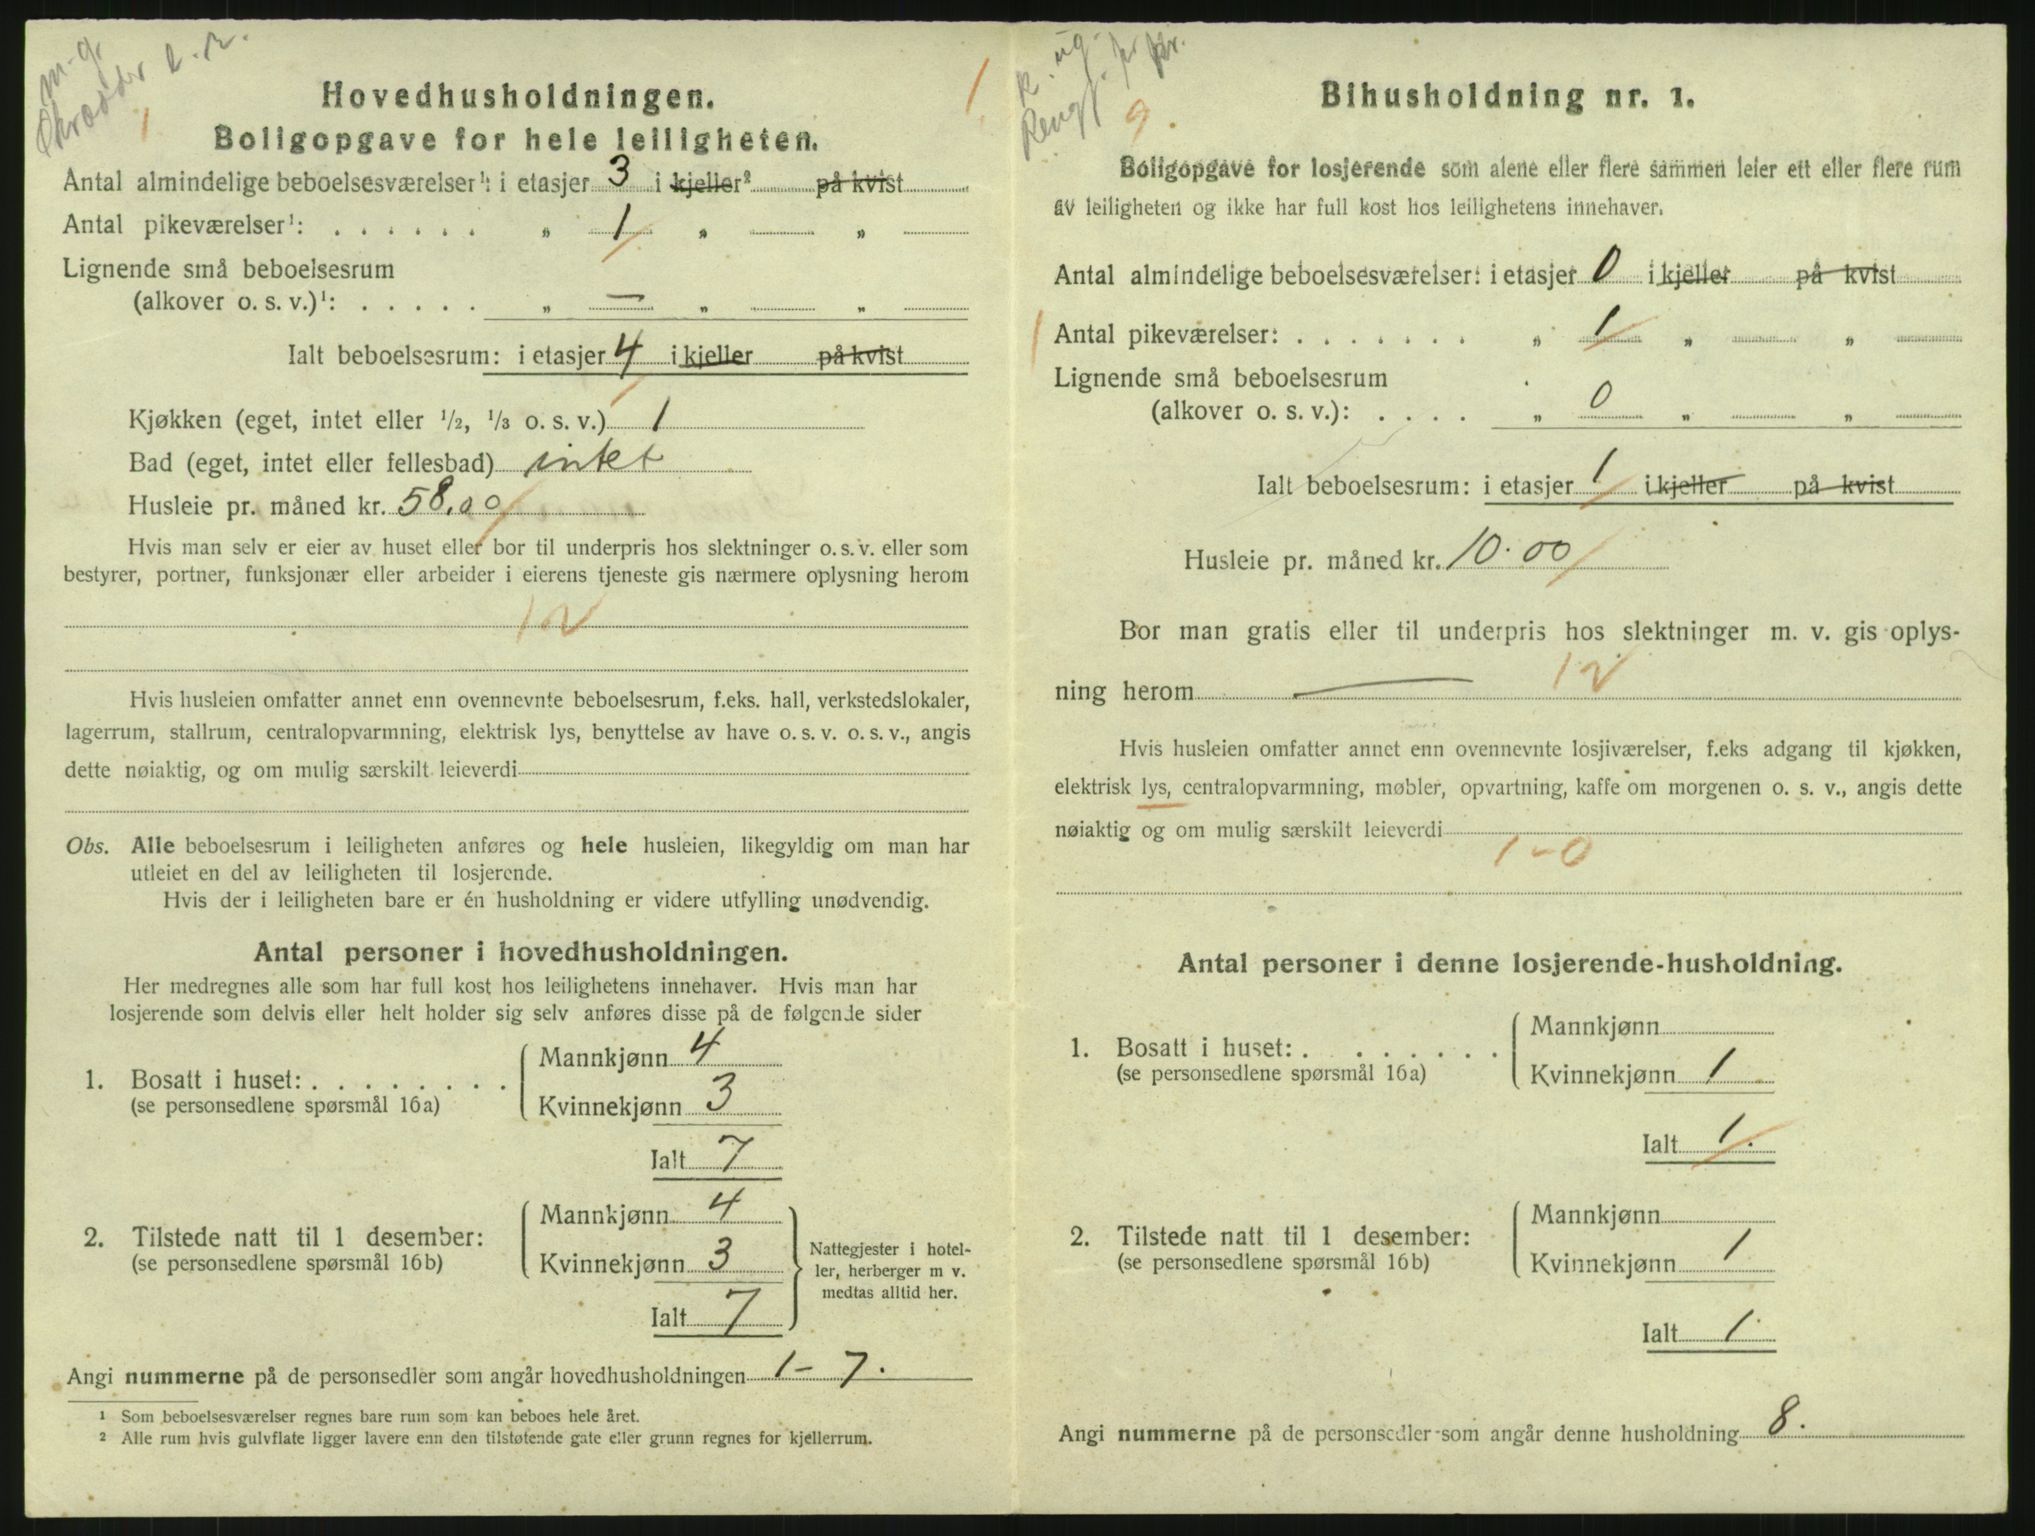 m. g.
1
1
Hovedhusholdningen.
Boligopgave for hele leiligheten.
Antal almindelige beboelsesværelser¹: i etasjer 3 i kjeller² på kvist
Antal pikeværelser¹: . . . . . . „ 1 „ „
Lignende små beboelsesrum
(alkover o. s. v.)¹: . . . . . „ — „ „
Ialt beboelsesrum: i etasjer 4 i kjeller på kvist
Kjøkken (eget, intet eller ½, ⅓ o. s. v.) 1
Bad (eget, intet eller fellesbad) intet
Husleie pr. måned kr. 58.00
Hvis man selv er eier av huset eller bor til underpris hos slektninger o. s. v. eller som
bestyrer, portner, funksjonær eller arbeider i eierens tjeneste gis nærmere oplysning herom
12
Hvis husleien omfatter annet enn ovennevnte beboelsesrum, f.eks. hall, verkstedslokaler,
lagerrum, stallrum, centralopvarmning, elektrisk lys, benyttelse av have o. s. v. o. s. v., angis
dette nøiaktig, og om mulig særskilt leieverdi
Obs. Alle beboelsesrum i leiligheten anføres og hele husleien, likegyldig om man har
utleiet en del av leiligheten til losjerende.
Hvis der i leiligheten bare er én husholdning er videre utfylling unødvendig.
Antal personer i hovedhusholdningen.
Her medregnes alle som har full kost hos leilighetens innehaver. Hvis man har
losjerende som delvis eller helt holder sig selv anføres disse på de følgende sider
Mannkjønn 4
1. Bosatt i huset: . . . . . . . .
(se personsedlene spørsmål 16a)
Kvinnekjønn 3
Ialt 7
Mannkjønn 4
2. Tilstede natt til 1 desember:
(se personsedlene spørsmål 16b)
Kvinnekjønn 3
Ialt 7
Nattegjester i hotel-
ler, herberger m v.
medtas alltid her.
Angi nummerne på de personsedler som angår hovedhusholdningen 1 – 7.
¹ Som beboelsesværelser regnes bare rum som kan beboes hele året.
² Alle rum hvis gulvflate ligger lavere enn den tilstøtende gate eller grunn regnes for kjellerrum.
9.
Bihusholdning nr. 1.
Boligopgave for losjerende som alene eller flere sammen leier ett eller flere rum
av leiligheten og ikke har full kost hos leilighetens innehaver.
Antal almindelige beboelsesværelser: i etasjer 0 i kjeller på kvist
1 Antal pikeværelser: . . . . . . . „ 1 „ „
Lignende små beboelsesrum
(alkover o. s. v.): . . . . „ 0 „ „
Ialt beboelsesrum: i etasjer 1 i kjeller på kvist
Husleie pr. måned kr. 10.00
Bor man gratis eller til underpris hos slektninger m. v. gis oplys-
ning herom —
12
Hvis husleien omfatter annet enn ovennevnte losjiværelser, f.eks adgang til kjøkken,
elektrisk lys, centralopvarmning, møbler, opvartning, kaffe om morgenen o. s. v., angis dette
nøiaktig og om mulig særskilt leieverdi
1-0
Antal personer i denne losjerende-husholdning.
Mannkjønn
1. Bosatt i huset: . . . . . . . .
(se personsedlene spørsmål 16a)
Kvinnekjønn 1
Ialt 1.
Mannkjønn
2. Tilstede natt til 1 desember:
(se personsedlene spørsmål 16b)
Kvinnekjønn 1
Ialt 1
Angi nummerne på de personsedler som angår denne husholdning 8.